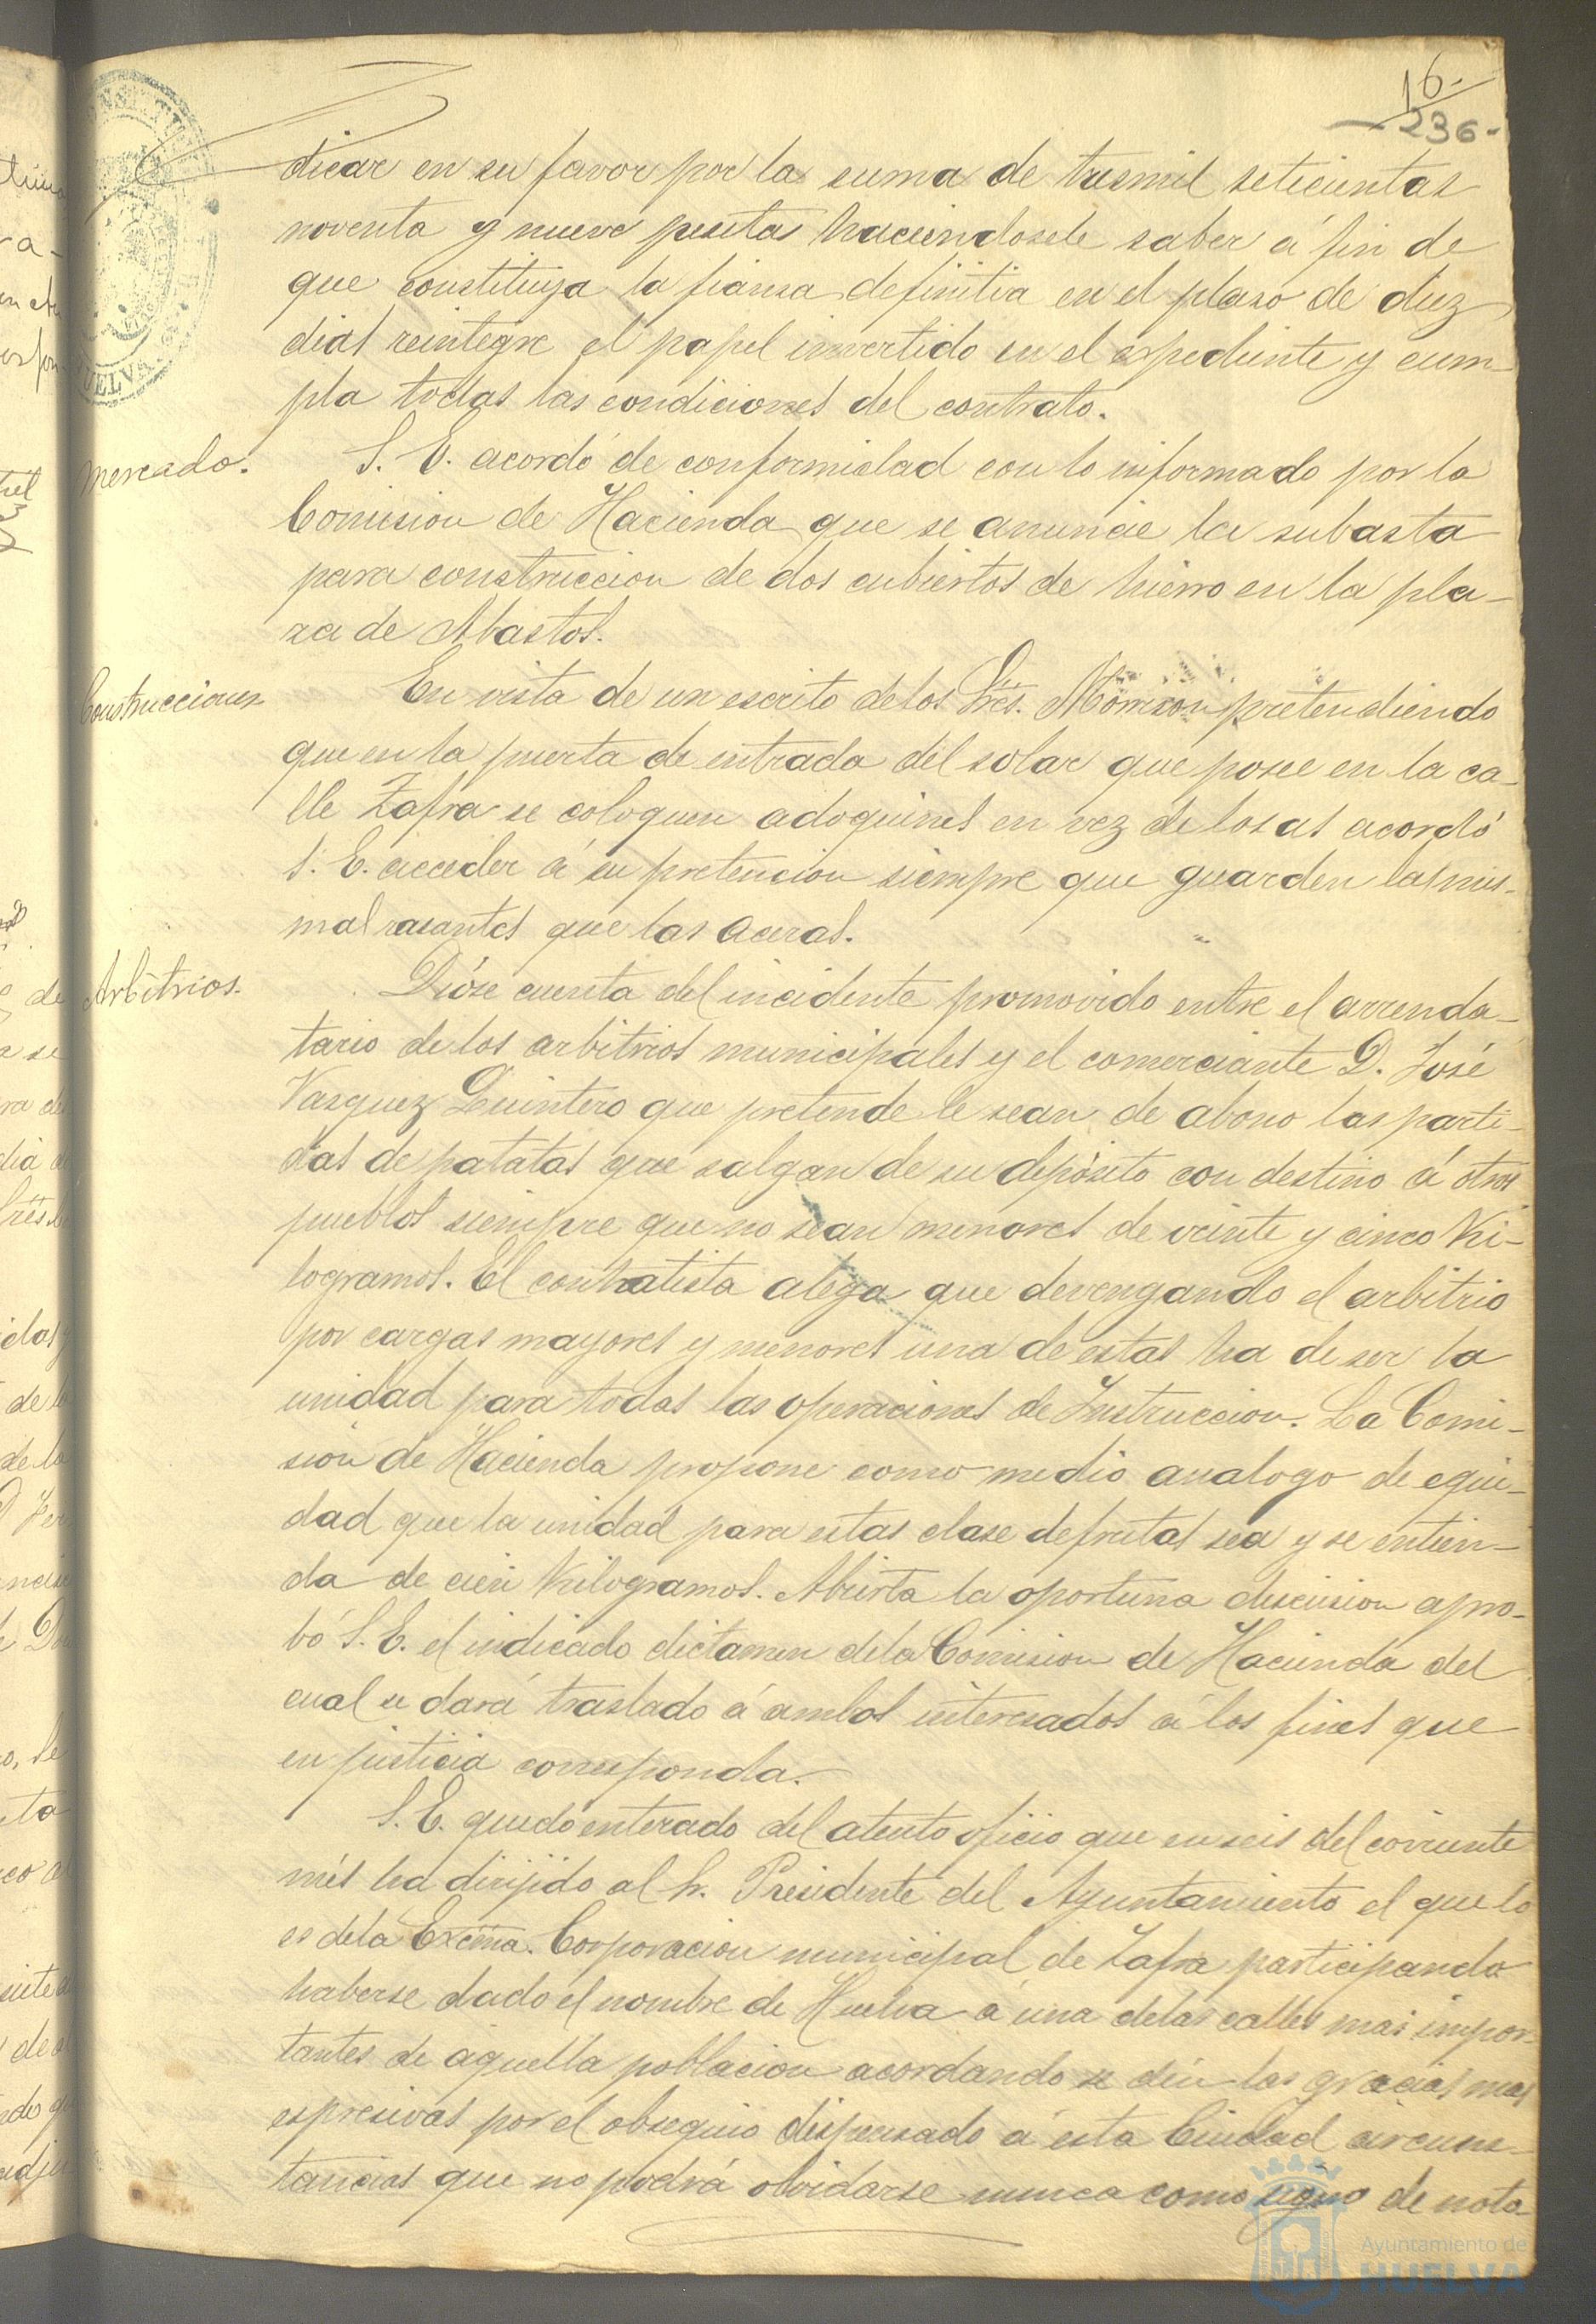 16-
236-
dicar en su favor por la suma de tresmil setecientas
noventa y nueve pesetas haciendosele saber á fin de
que constituya la fianza definitiva en el plazo de diez
dias reintegre el papel invertido en el expediente y cum-
pla todas las condiciones del contrato.
Mercado.
S. E. acordó de conformidad con lo informado por la
Comision de Hacienda que se anuncie la subasta
para construccion de dos cubiertos de hierro en la pla-
za de Abastos.
Construcciones
En vista de un escrito de los Sres. Morrison pretendiendo
que en la puerta de entrada del solar que posee en la ca-
lle Zafra se coloquen adoquines en vez de losas acordó
S. E. acceder á su pretencion siempre que guarden las mis-
mas rasantes que las aceras.
Arbitrios.
Dióse cuenta del incidente promovido entre el arrenda-
tario de los arbitrios municipales y el comerciante D. José
Vazquez Quintero que pretende le sean de abono las parti-
das de patatas que salgan de su depósito con destino á otros
pueblos siempre que no sean menores de veinte y cinco Ki-
logramos. El contratista alega que devengando el arbitrio
por cargas mayores y menores una de estas ha de ser la
unidad para todas las operaciones de Instruccion. La Comi-
sion de Hacienda propone como medio analogo de equi-
dad que la unidad para estas clase de frutas sea y se entien-
da de cien Kilogramos. Abierta la oportuna discusion apro-
bó S. E. el indicado dictamen de la Comision de Hacienda del
cual se dará traslado á ambos interesados á los fines que
en justicia corresponda.
S. E. quedó enterado del atento oficio que en seis del corriente
mes ha dirijido al Sr. Presidente del Ayuntamiento el que lo
es de la Excma. Corporacion municipal de Zafra participando
haberse dado el nombre de Huelva á una de las calles mas impor-
tantes de aquella poblacion acordando se dén las gracias mas
espresivas por el obsequio dispensado á esta Ciudad circuns-
tancias que no podrá olvidarse nunca como signo de nota-
Ayuntamiento de
HUELVA